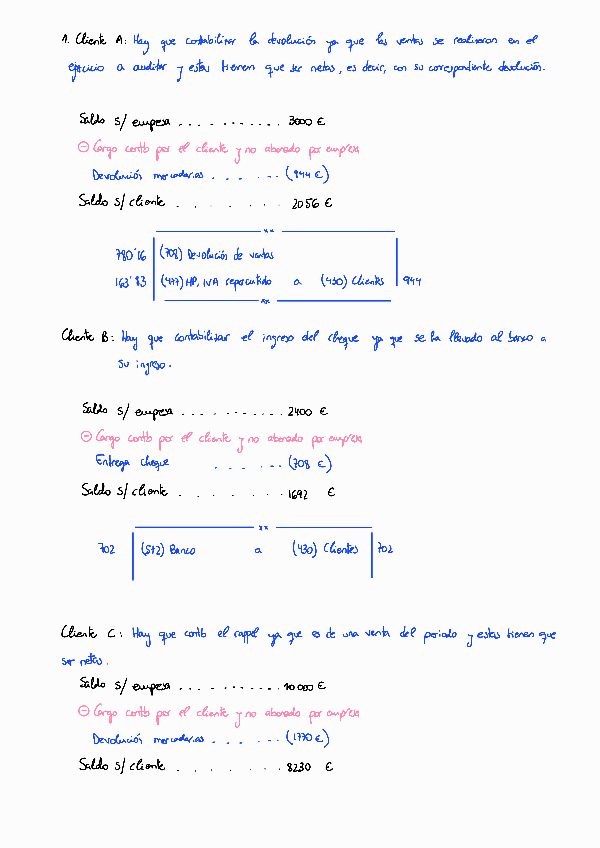 1. Cliente A: Hay que contabilizar la devolución ya que las ventas se realizaron en el
ejercicio a auditar y estas tienen que ser netas, es decir, con su correspondiente devolución.
Saldo s/ empresa . . . . . . . . . . . 3000 €
⊖ Cargo contb por el cliente y no abonado por empresa
Devolución mercaderias . . . . . . (944 €)
Saldo s/ cliente . . . . . . . 2056 €
xx
780'16 (708) Devolución de ventas
163'83 (477) HP, IVA repercutido a (430) Clientes 944
xx
Cliente B: Hay que contabilizar el ingreso del cheque ya que se ha llevado al banco a
su ingreso.
Saldo s/ empresa . . . . . . . . . . . 2400 €
⊖ Cargo contb por el cliente y no abonado por empresa
Entrega cheque . . . . . . (708 €)
Saldo s/ cliente . . . . . . . . 1692 €
xx
702 (572) Banco a (430) Clientes 702
Cliente C: Hay que contb el rappel ya que es de una venta del periodo y estas tienen que
ser netas.
Saldo s/ empresa . . . . . . . . . . . 10 000 €
⊖ Cargo contb por el cliente y no abonado por empresa
Devolución mercaderias . . . . . . (1770 €)
Saldo s/ cliente . . . . . . . . 8230 €